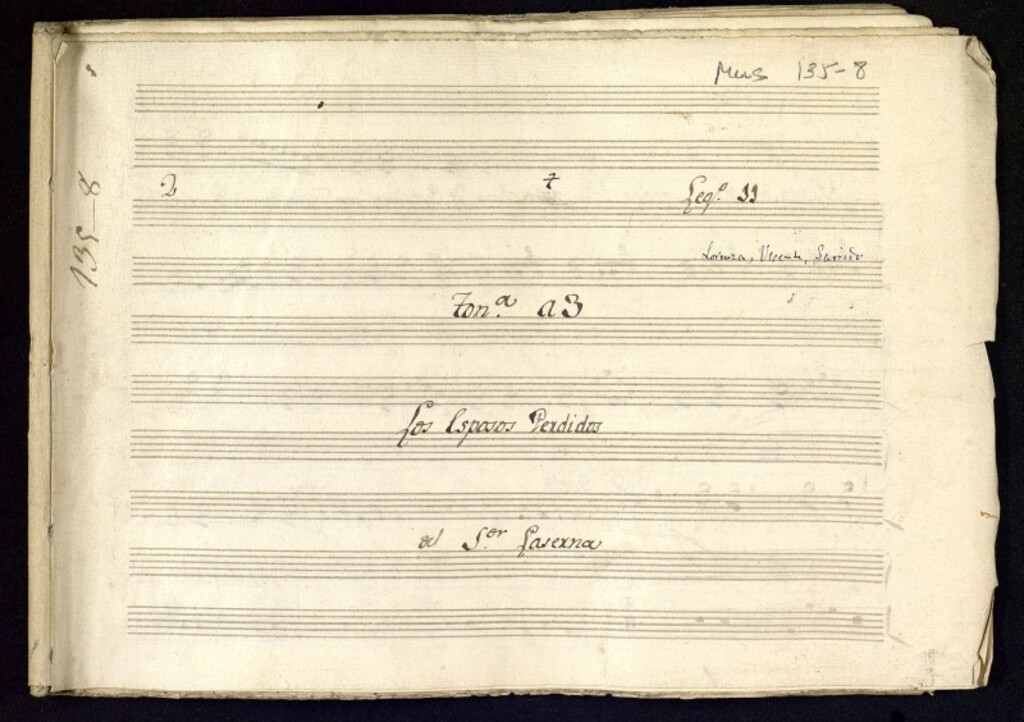 Mus 135-8
135-8
2 7 Leg.º 11
Lorenza, Vicente, Garrido
Ton.ª a 3
Los Esposos Perdidos
del S.or Laserna